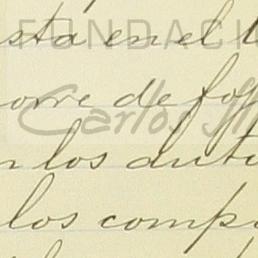 FUNDACI
sta en el t
orre de fo
Carlos
los auto
los comp